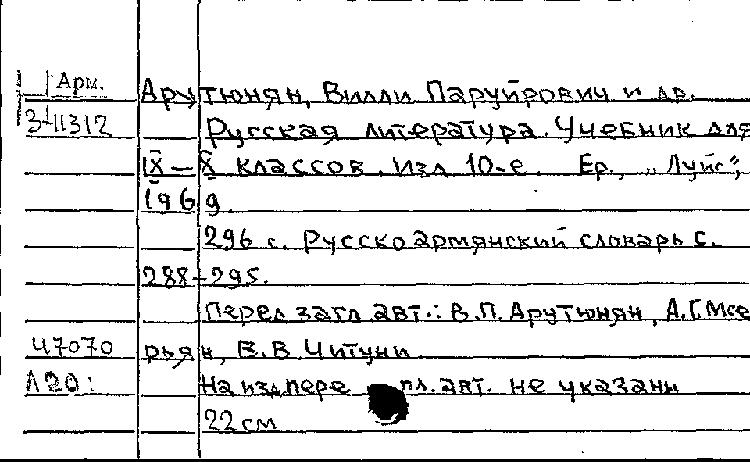 Арм.
Арутюнян, Вилли Паруйрович и др.
3-11312
Русская литература. Учебник для
IX–X классов. Изд 10-е. Ер., „Луйс",
1969.
296 с. Русско армянский словарь с.
288-295.
Перед загл авт.: В.П. Арутюнян, А.Г. Мсе
47070
рьян, В.В Читуни
Л20:
На изд пере пл. авт. не указаны
22 см